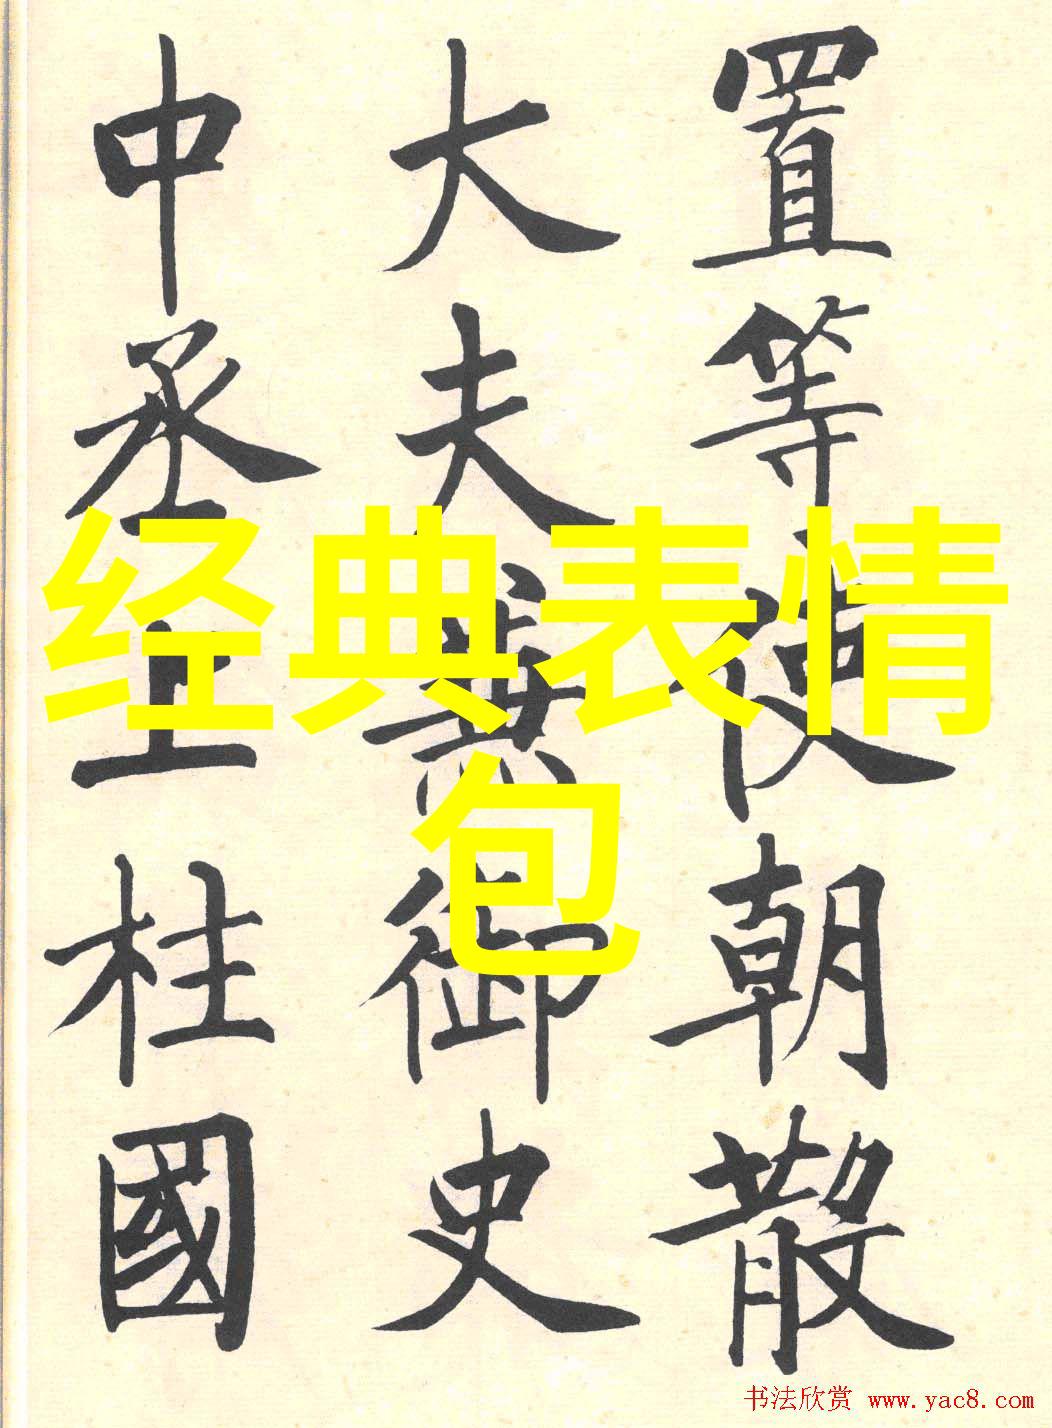 置等使朝散
大夫兼御史
中丞上柱國
经典表情
包
书法欣赏 www.yac8.com